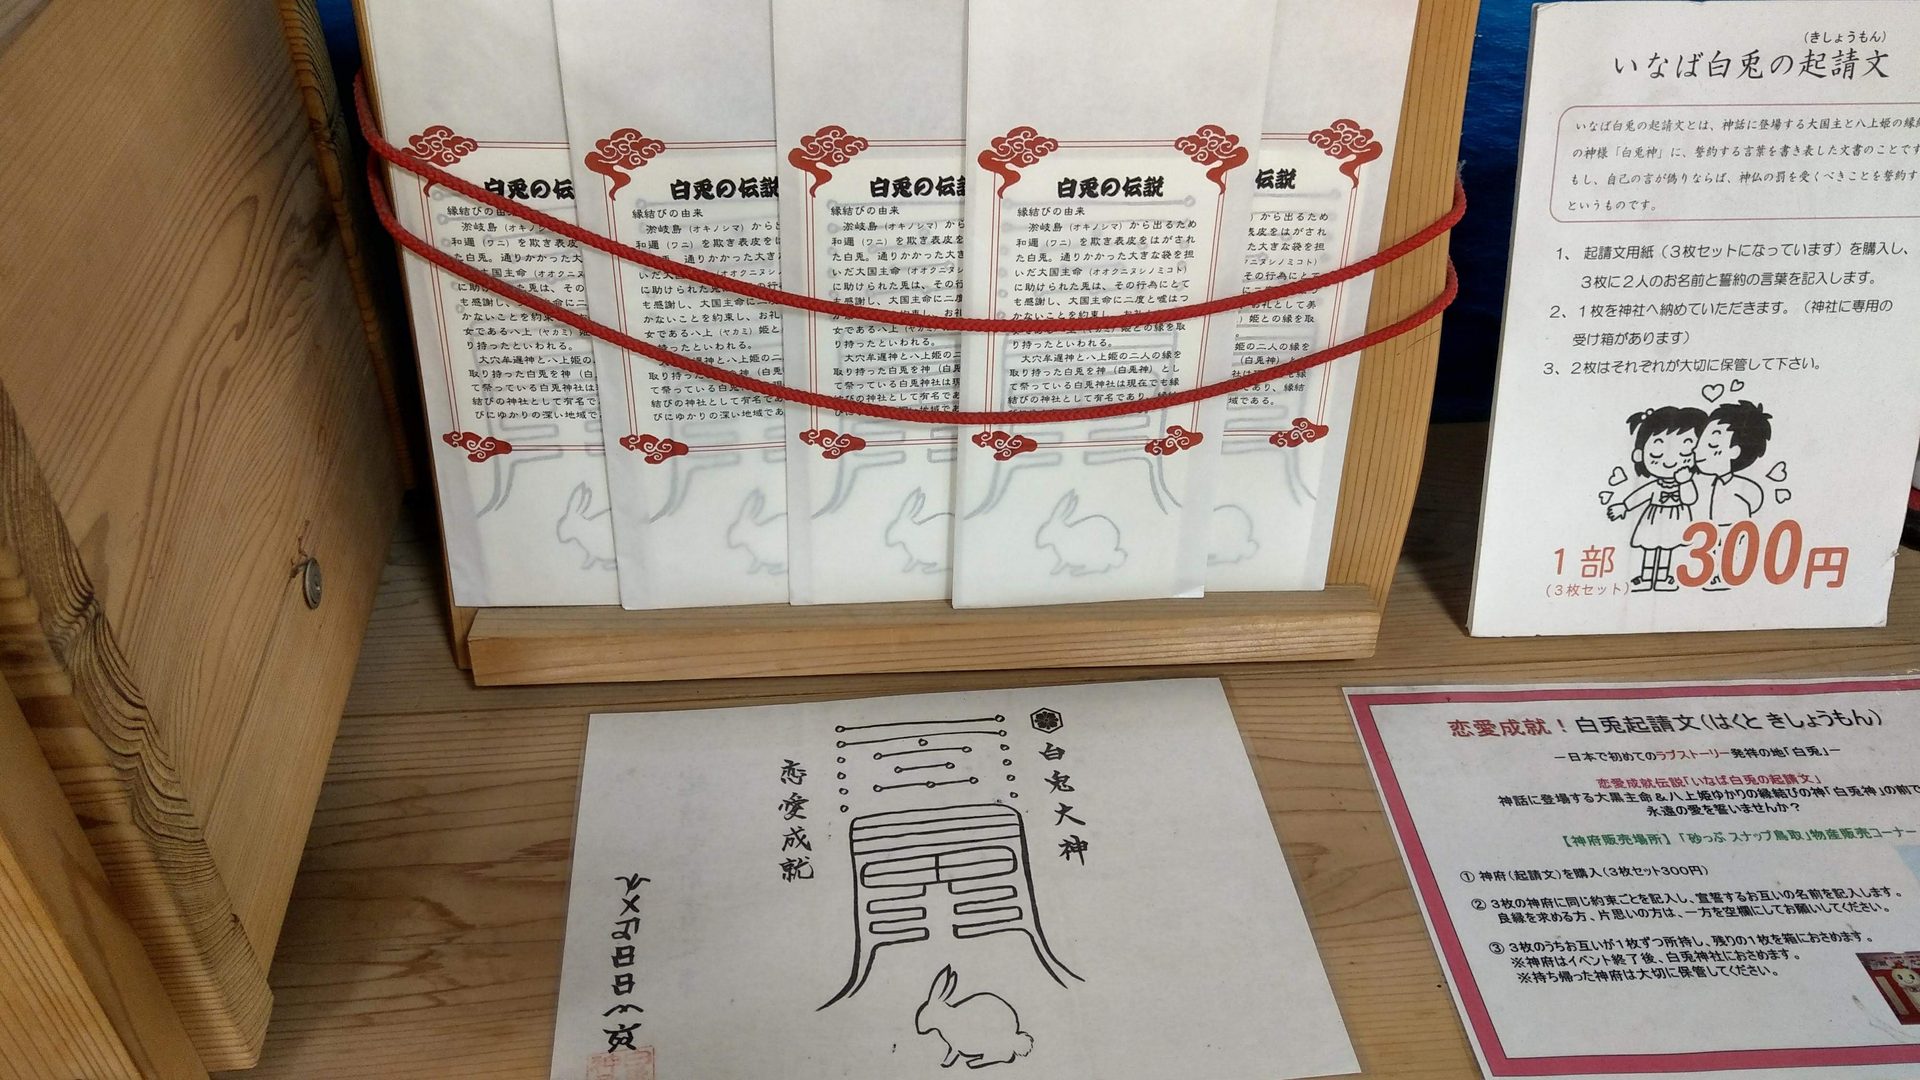 白兎の伝説
縁結びの由来
淤岐島（オキノシマ）から出るため
和邇（ワニ）を欺き表皮をはがされ
た白兎。通りかかった大きな袋を担
いだ大国主命（オオクニヌシノミコト）
に助けられた兎は、その行為にとて
も感謝し、大国主命に二度と嘘はつ
かないことを約束し、お礼として美
女である八上（ヤカミ）姫との縁を取
り持ったといわれる。
大穴牟遅神と八上姫の二人の縁を
取り持った白兎を神（白兎神）とし
て祭っている白兎神社は現在でも縁
結びの神社として有名であり、縁結
びにゆかりの深い地域である。
（きしょうもん）
いなば白兎の起請文
いなば白兎の起請文とは、神話に登場する大国主と八上姫の縁結
の神様「白兎神」に、誓約する言葉を書き表した文書のことです
もし、自己の言が偽りならば、神仏の罰を受くべきことを誓約す
というものです。
1、起請文用紙（3枚セットになっています）を購入し、
3枚に2人のお名前と誓約の言葉を記入します。
2、1枚を神社へ納めていただきます。（神社に専用の
受け箱があります）
3、2枚はそれぞれが大切に保管して下さい。
1部 300円
（3枚セット）
白兎大神
恋愛成就
恋愛成就！白兎起請文（はくと きしょうもん）
ー日本で初めてのラブストーリー発祥の地「白兎」ー
恋愛成就伝説「いなば白兎の起請文」
神話に登場する大黒主命＆八上姫ゆかりの縁結びの神「白兎神」の前で
永遠の愛を誓いませんか？
【神府販売場所】「砂っぷ スナップ鳥取」物産販売コーナー
① 神府（起請文）を購入（3枚セット300円）
② 3枚の神府に同じ約束ごとを記入し、宣誓するお互いの名前を記入します。
良縁を求める方、片思いの方は、一方を空欄にしてお願いしてください。
③ 3枚のうちお互いが1枚ずつ所持し、残りの1枚を箱におさめます。
※神府はイベント終了後、白兎神社におさめます。
※持ち帰った神府は大切に保管してください。